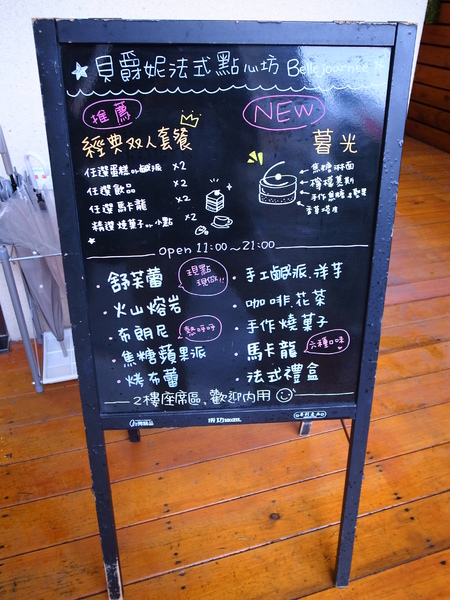 貝爵妮法式點心坊 Belle journée
推薦
經典双人套餐
任選蛋糕or鹹派 x2
任選飲品 x2
任選馬卡龍 x2
精選燒菓子or小點 x2
NEW
暮光
焦糖淋面
檸檬慕斯
手作焦糖
open 11:00~21:00
舒芙蕾
現點
現做!!
火山熔岩
布朗尼
熱呼呼
焦糖蘋果派
烤布蕾
手工鹹派.洋芋
咖啡.花茶
手作燒菓子
馬卡龍
六種口味
法式禮盒
2樓座席區,歡迎內用